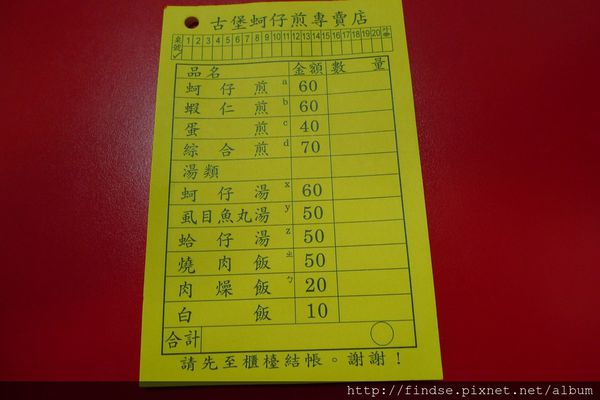 古堡蚵仔煎專賣店
桌號 1 2 3 4 5 6 7 8 9 10 11 12 13 14 15 16 17 18 19 20 外帶
品名 金額 數量
蚵仔煎 a 60
蝦仁煎 b 60
蛋煎 c 40
綜合煎 d 70
湯類
蚵仔湯 x 60
虱目魚丸湯 y 50
蛤仔湯 z 50
燒肉飯 ㄓ 50
肉燥飯 ㄅ 20
白飯 10
合計
請先至櫃檯結帳。謝謝！
http://findse.pixnet.net/album